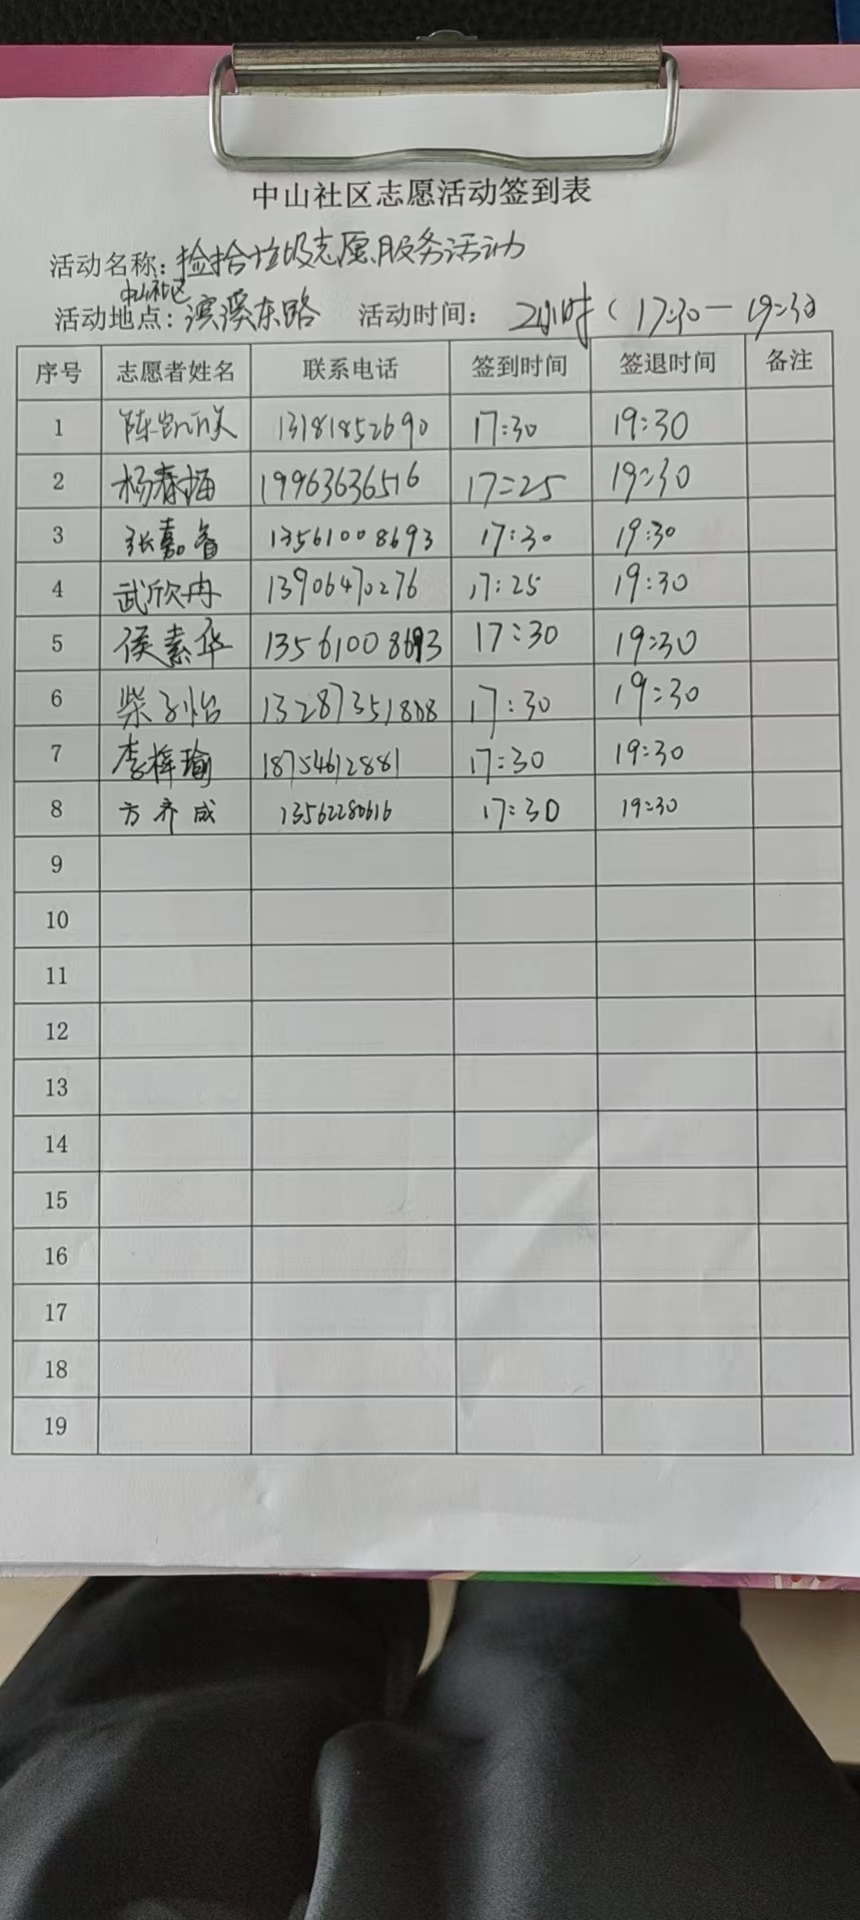 中山社区志愿活动签到表
活动名称：捡拾垃圾志愿服务活动
中山社区
活动地点：滨溪东路 活动时间：2小时（17:30—19:30
序号 志愿者姓名 联系电话 签到时间 签退时间 备注
1 陈凯欣 13181852690 17:30 19:30
2 杨春梅 19963636516 17:25 19:30
3 张嘉睿 13561008693 17:30 19:30
4 武欣冉 13906470276 17:25 19:30
5 侯素华 13561008693 17:30 19:30
6 柴子怡 13287351808 17:30 19:30
7 李梓瑜 18754612881 17:30 19:30
8 方乔成 13562280616 17:30 19:30
9
10
11
12
13
14
15
16
17
18
19